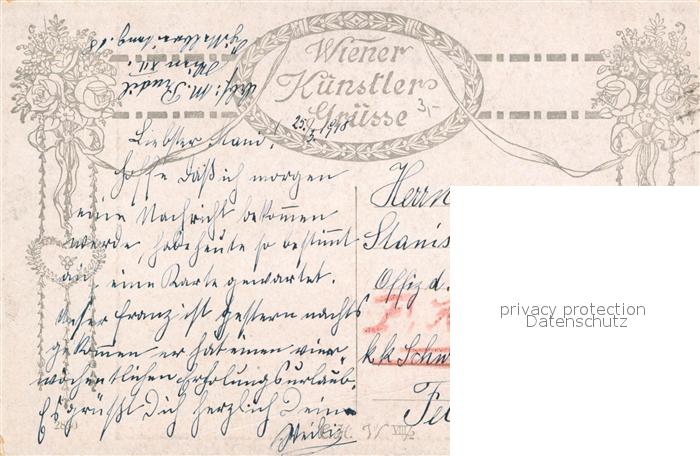 Wiener
Künstler
Grüsse
3,-
25./5. 1918
Liebster Stani!
Hoffe daß ich morgen
eine Nachricht bekommen
werde, habe heute so bestimmt
auf eine Karte gewartet.
Unser Franz ist gestern nachts
gekommen er hat einen vier-
wöchentlichen Erholungsurlaub.
Es grüßt Dich herzlich Deine
Herrn
Stanis
Offiz d.
k k Schw
Fe
VIII/2
privacy protection
Datenschutz